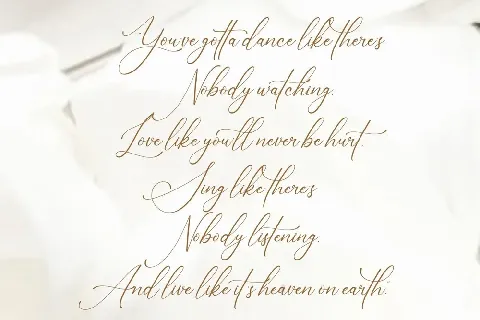 You've gotta dance like there's
Nobody watching.
Love like you'll never be hurt.
Sing like there's
Nobody listening.
And live like it's heaven on earth.